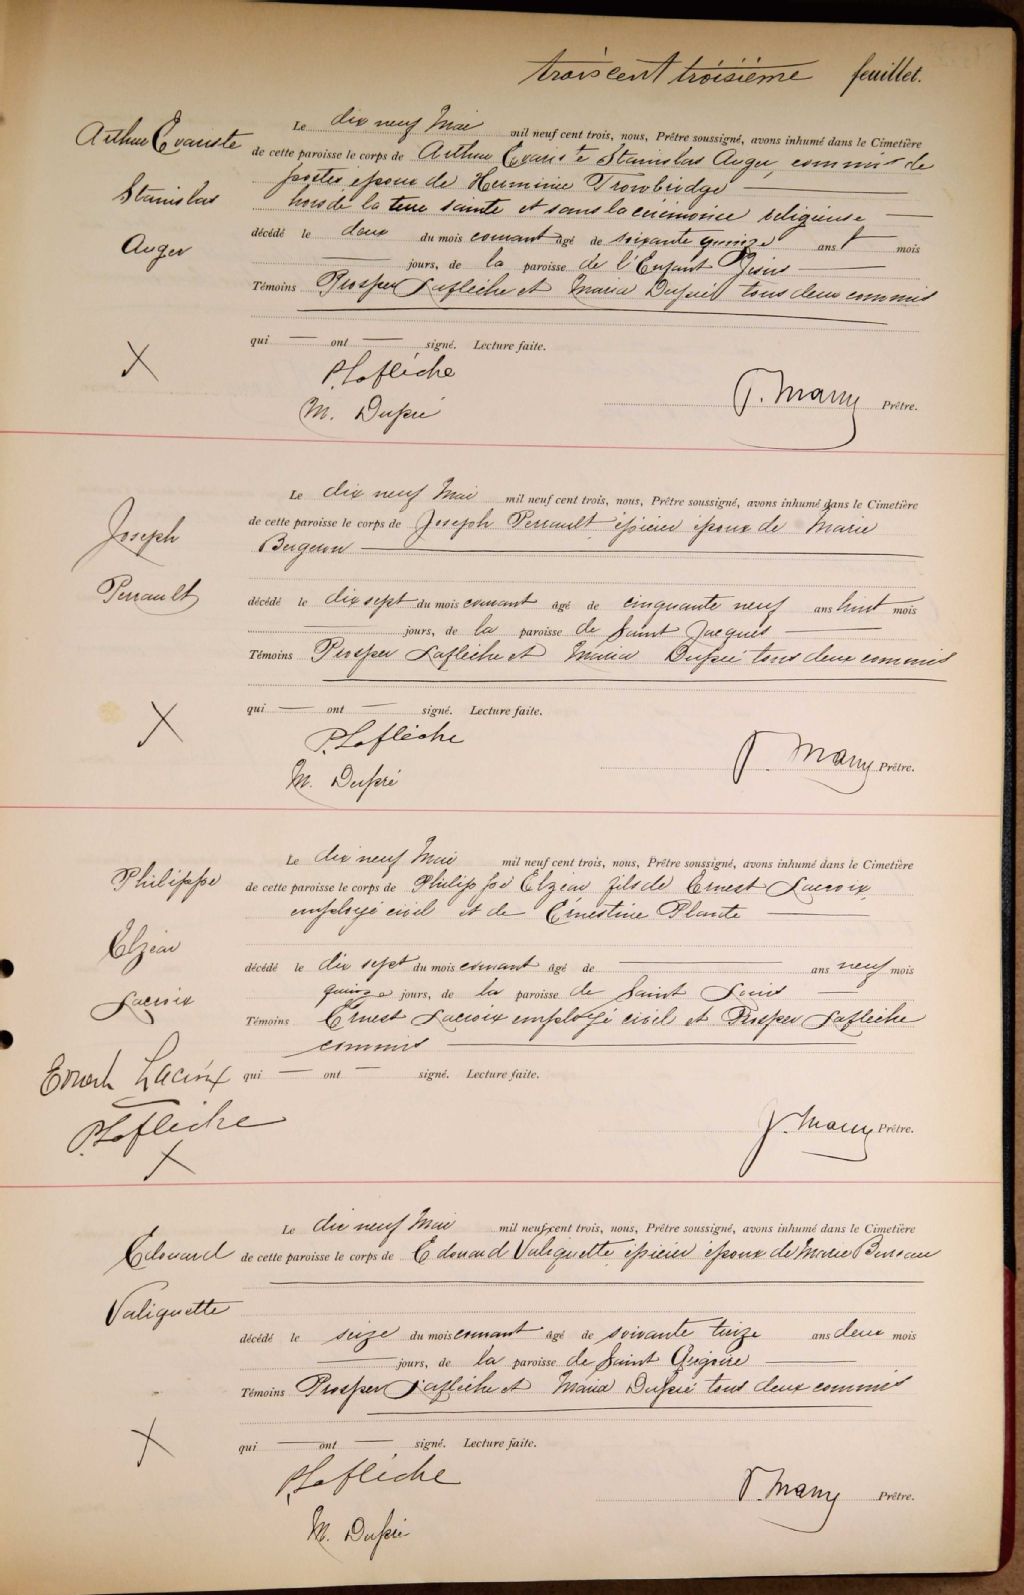 trois cent troisième feuillet.
Arthur Evariste
Stanislas
Auger
Le dix neuf Mai mil neuf cent trois, nous, Prêtre soussigné, avons inhumé dans le Cimetière
de cette paroisse le corps de Arthur Evariste Stanislas Auger, commis de
postes epoux de Herminie Trowbridge
hors de la terre sainte et sans la cérémonie religieuse
décédé le deux du mois courant âgé de soixante quinze ans mois
jours, de la paroisse de l'Enfant Jésus
Témoins Prosper Laflèche et Maria Dupré tous deux commis
qui ont signé. Lecture faite.
X
P. Laflèche
M. Dupré
Prêtre.
Joseph
Perrault
Le dix neuf Mai mil neuf cent trois, nous, Prêtre soussigné, avons inhumé dans le Cimetière
de cette paroisse le corps de Joseph Perrault épicier époux de Marie
Bergeron
décédé le dix sept du mois courant âgé de cinquante neuf ans huit mois
jours, de la paroisse de Saint Jacques
Témoins Prosper Laflèche et Maria Dupré tous deux commis
qui ont signé. Lecture faite.
X
P. Laflèche
M. Dupré
Prêtre.
Philippe
Elzéar
Lacroix
Le dix neuf Mai mil neuf cent trois, nous, Prêtre soussigné, avons inhumé dans le Cimetière
de cette paroisse le corps de Philippe Elzéar fils de Ernest Lacroix
employé civil et de Ernestine Plante
décédé le dix sept du mois courant âgé de ans neuf mois
quinze jours, de la paroisse de Saint Louis
Témoins Ernest Lacroix employé civil et Prosper Laflèche
commis
qui ont signé. Lecture faite.
Ernest Lacroix
P. Laflèche
X
Prêtre.
Edouard
Valiquette
Le dix neuf Mai mil neuf cent trois, nous, Prêtre soussigné, avons inhumé dans le Cimetière
de cette paroisse le corps de Edouard Valiquette épicier époux de Marie
décédé le seize du mois courant âgé de soixante treize ans deux mois
jours, de la paroisse de Saint Grégoire
Témoins Prosper Laflèche et Maria Dupré tous deux commis
qui ont signé. Lecture faite.
X
P. Laflèche
M. Dupré
Prêtre.